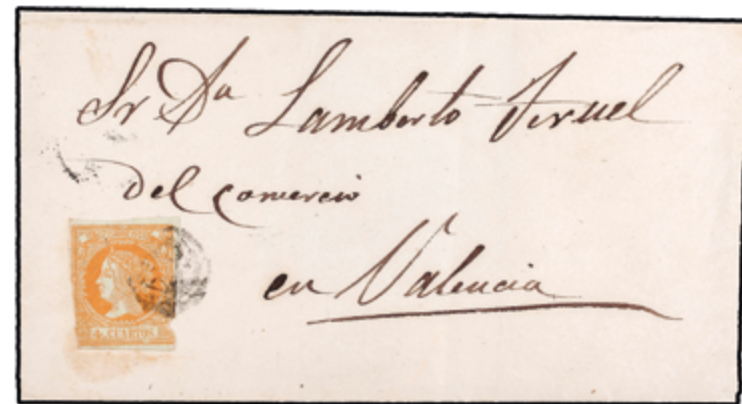 Sr Dn Lamberto Teruel
del comercio
en Valencia
4 CUARTOS